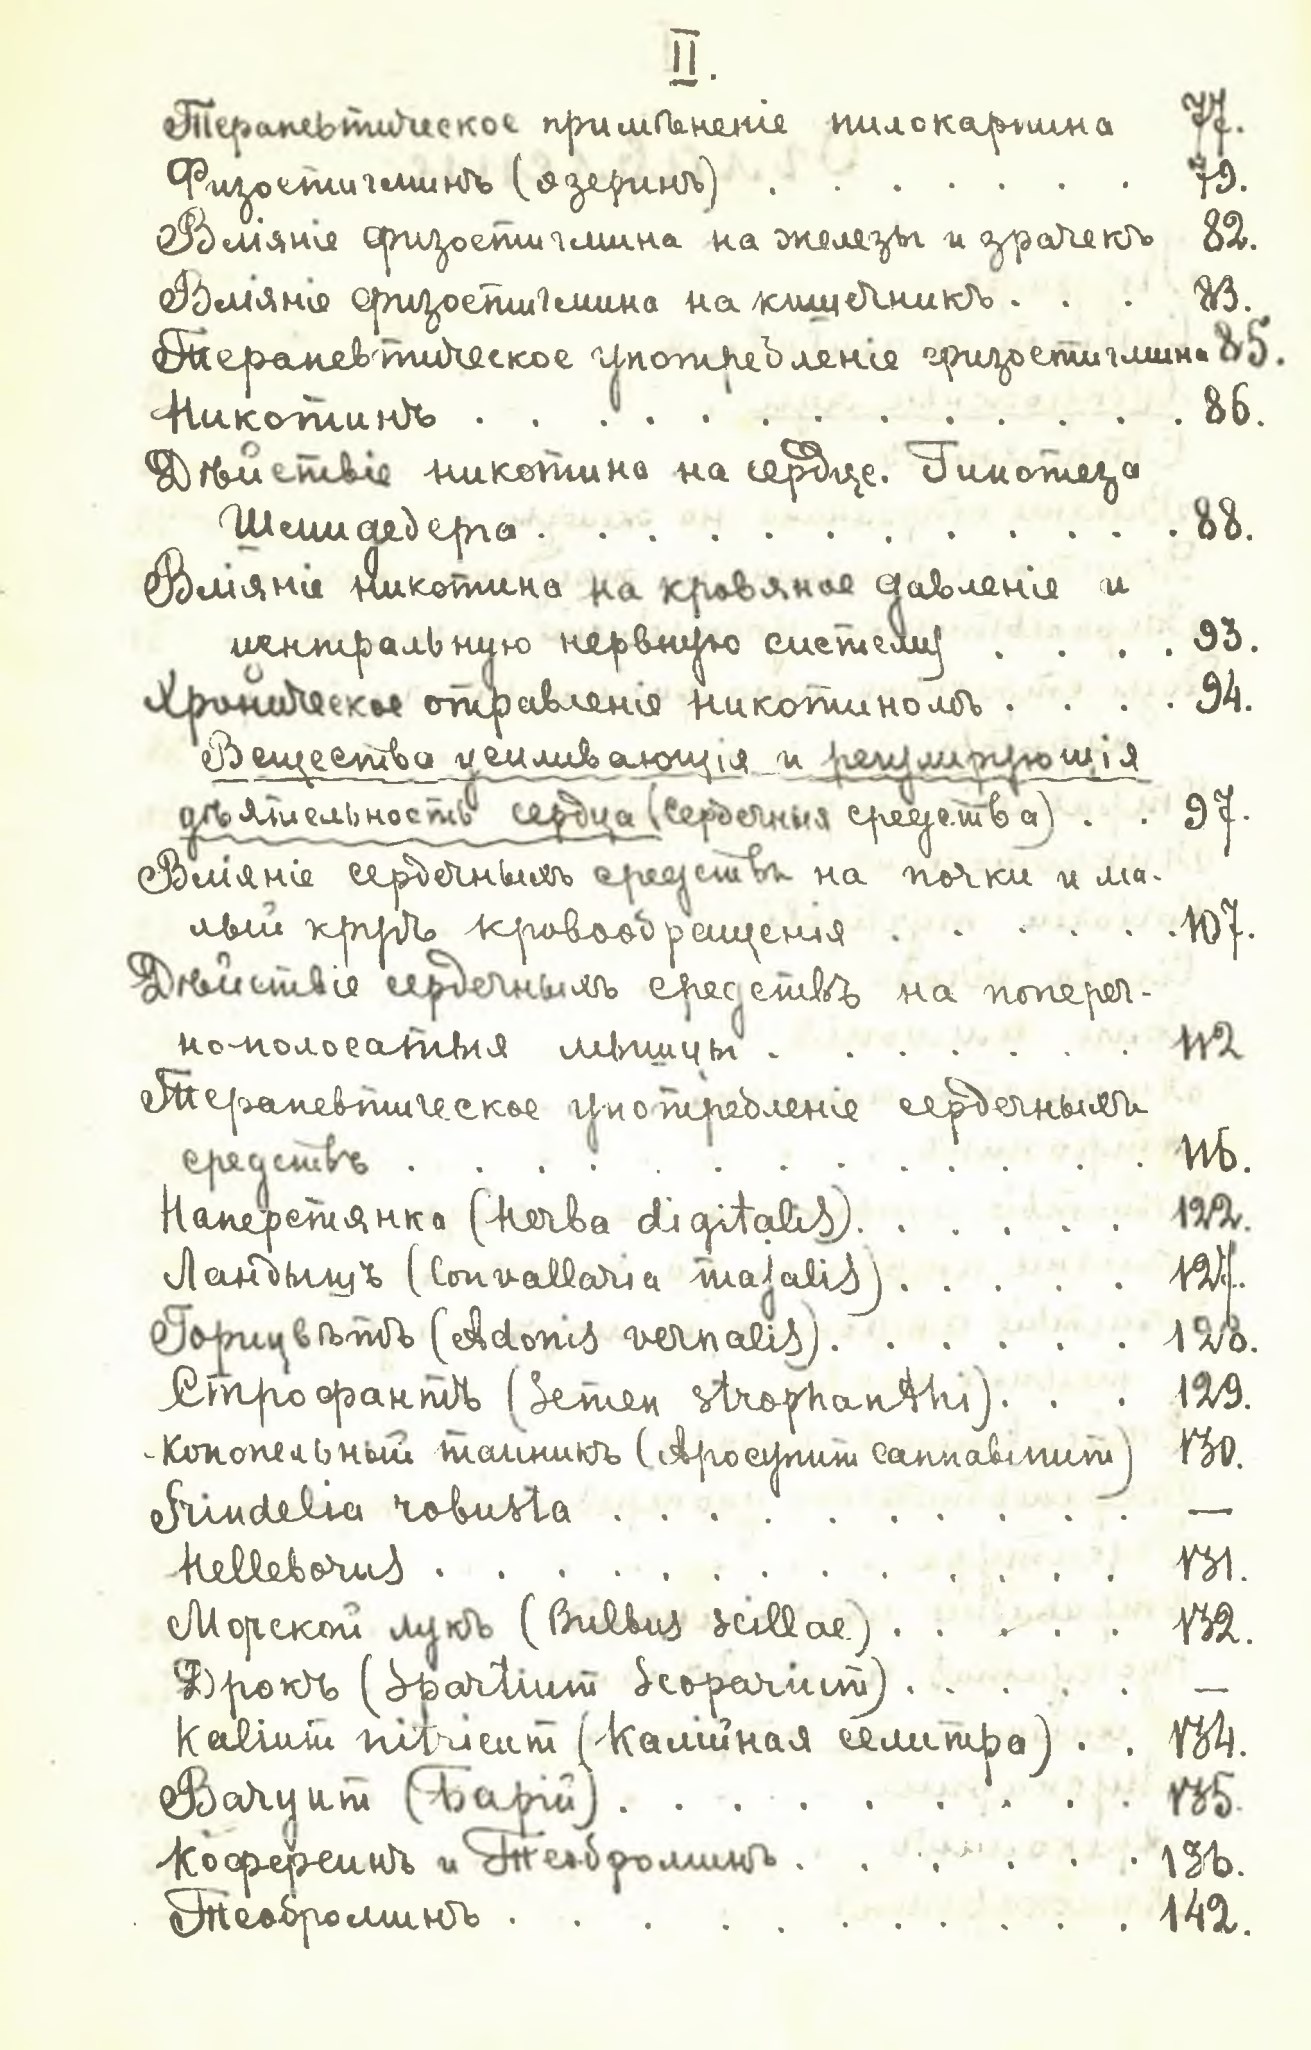 II.
Терапевтическое примѣненіе пилокарпина 77.
Физостигминъ (эзеринъ) . . . . . . . 79.
Вліяніе физостигмина на железы и зрачекъ 82.
Вліяніе физостигмина на кишечникъ . . . 83.
Терапевтическое употребленіе физостигмина 85.
Никотинъ . . . . . . . . . . . . . 86.
Дѣйствіе никотина на сердце. Гипотеза
Шмидеберга . . . . . . . . . . . . 88.
Вліяніе никотина на кровяное давленіе и
центральную нервную систему . . . . 93.
Хроническое отравленіе никотиномъ . . . . 94.
Вещества усиливающія и регулирующія
дѣятельность сердца (сердечныя средства) . . 97.
Вліяніе сердечныхъ средствъ на почки и ма-
лый кругъ кровообращенія . . . . . . 107.
Дѣйствіе сердечныхъ средствъ на попереч-
но-полосатыя мышцы . . . . . . . 112
Терапевтическое употребленіе сердечныхъ
средствъ . . . . . . . . . . . . . 116.
Наперстянка (Herba digitalis) . . . . . . 122.
Ландышъ (Convallaria majalis) . . . . . 127.
Горицвѣтъ (Adonis vernalis) . . . . . . 128.
Строфантъ (Semen strophanthi) . . . 129.
Конопельный (Apocynum cannabinum) 130.
Grindelia robusta . . . . . . . . . . —
Helleborus . . . . . . . . . . . . . 131.
Морской лукъ (Bulbus scillae) . . . . . 132.
Дрокъ (Spartium Scoparium) . . . . . —
Kalium nitricum (Калійная селитра) . . 134.
(Барій) . . . . . . . . . . 135.
Кофреинъ и Теобромимъ . . . . . . 136.
Теоброминъ . . . . . . . . . . . 142.